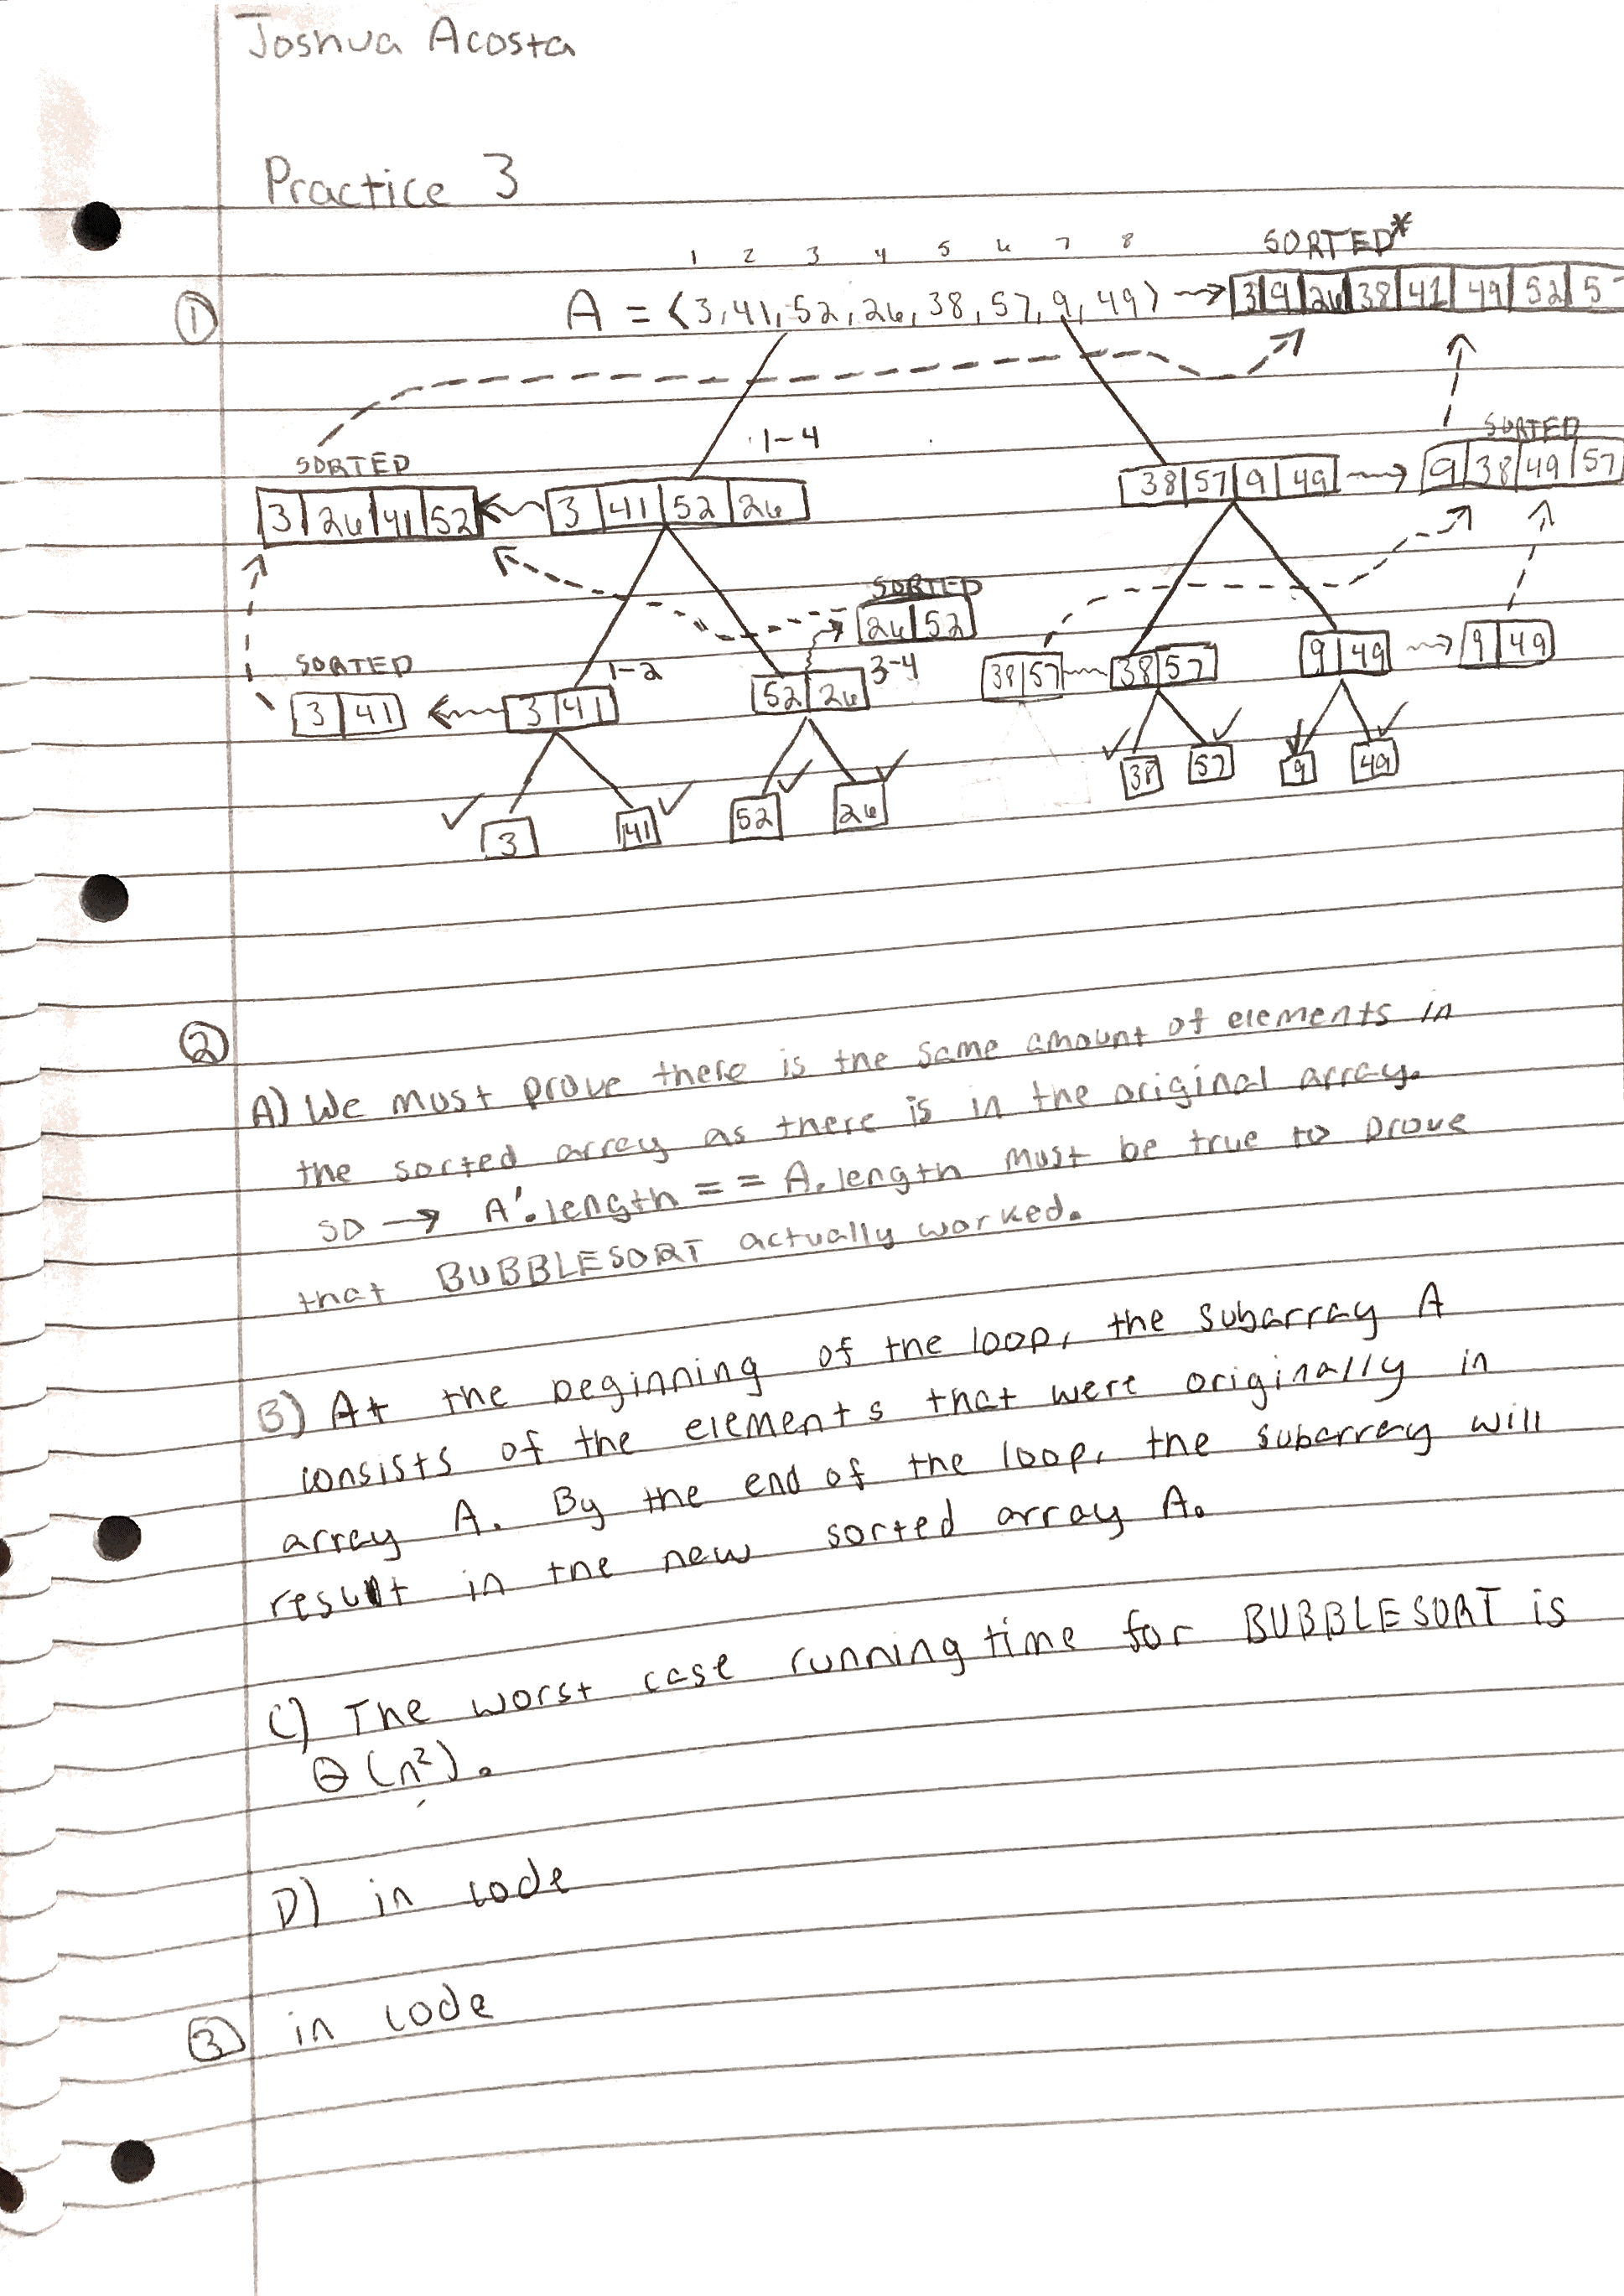 Joshua Acosta
Practice 3
1 2 3 4 5 6 7 8 SORTED*
① A = ⟨3,41,52,26,38,57,9,49⟩ → 3 9 26 38 41 49 52 5
1-4
SORTED SORTED
3 26 41 52 ← 3 41 52 26 38 57 9 49 → 9 38 49 57
SORTED
26 52
SORTED 1-2 3-4
3 41 ← 3 41 52 26 38 57 38 57 9 49 → 9 49
✓ 3 41 ✓ 52 ✓ 26 ✓ ✓ 38 57 ✓ 9 49 ✓
②
A) We must prove there is the same amount of elements in
the sorted array as there is in the original array.
SO → A'.length == A.length must be true to prove
that BUBBLESORT actually worked.
B) At the beginning of the loop, the subarray A
consists of the elements that were originally in
array A. By the end of the loop, the subarray will
result in the new sorted array A.
C) The worst case running time for BUBBLESORT is
Θ(n²).
D) in code
③ in code